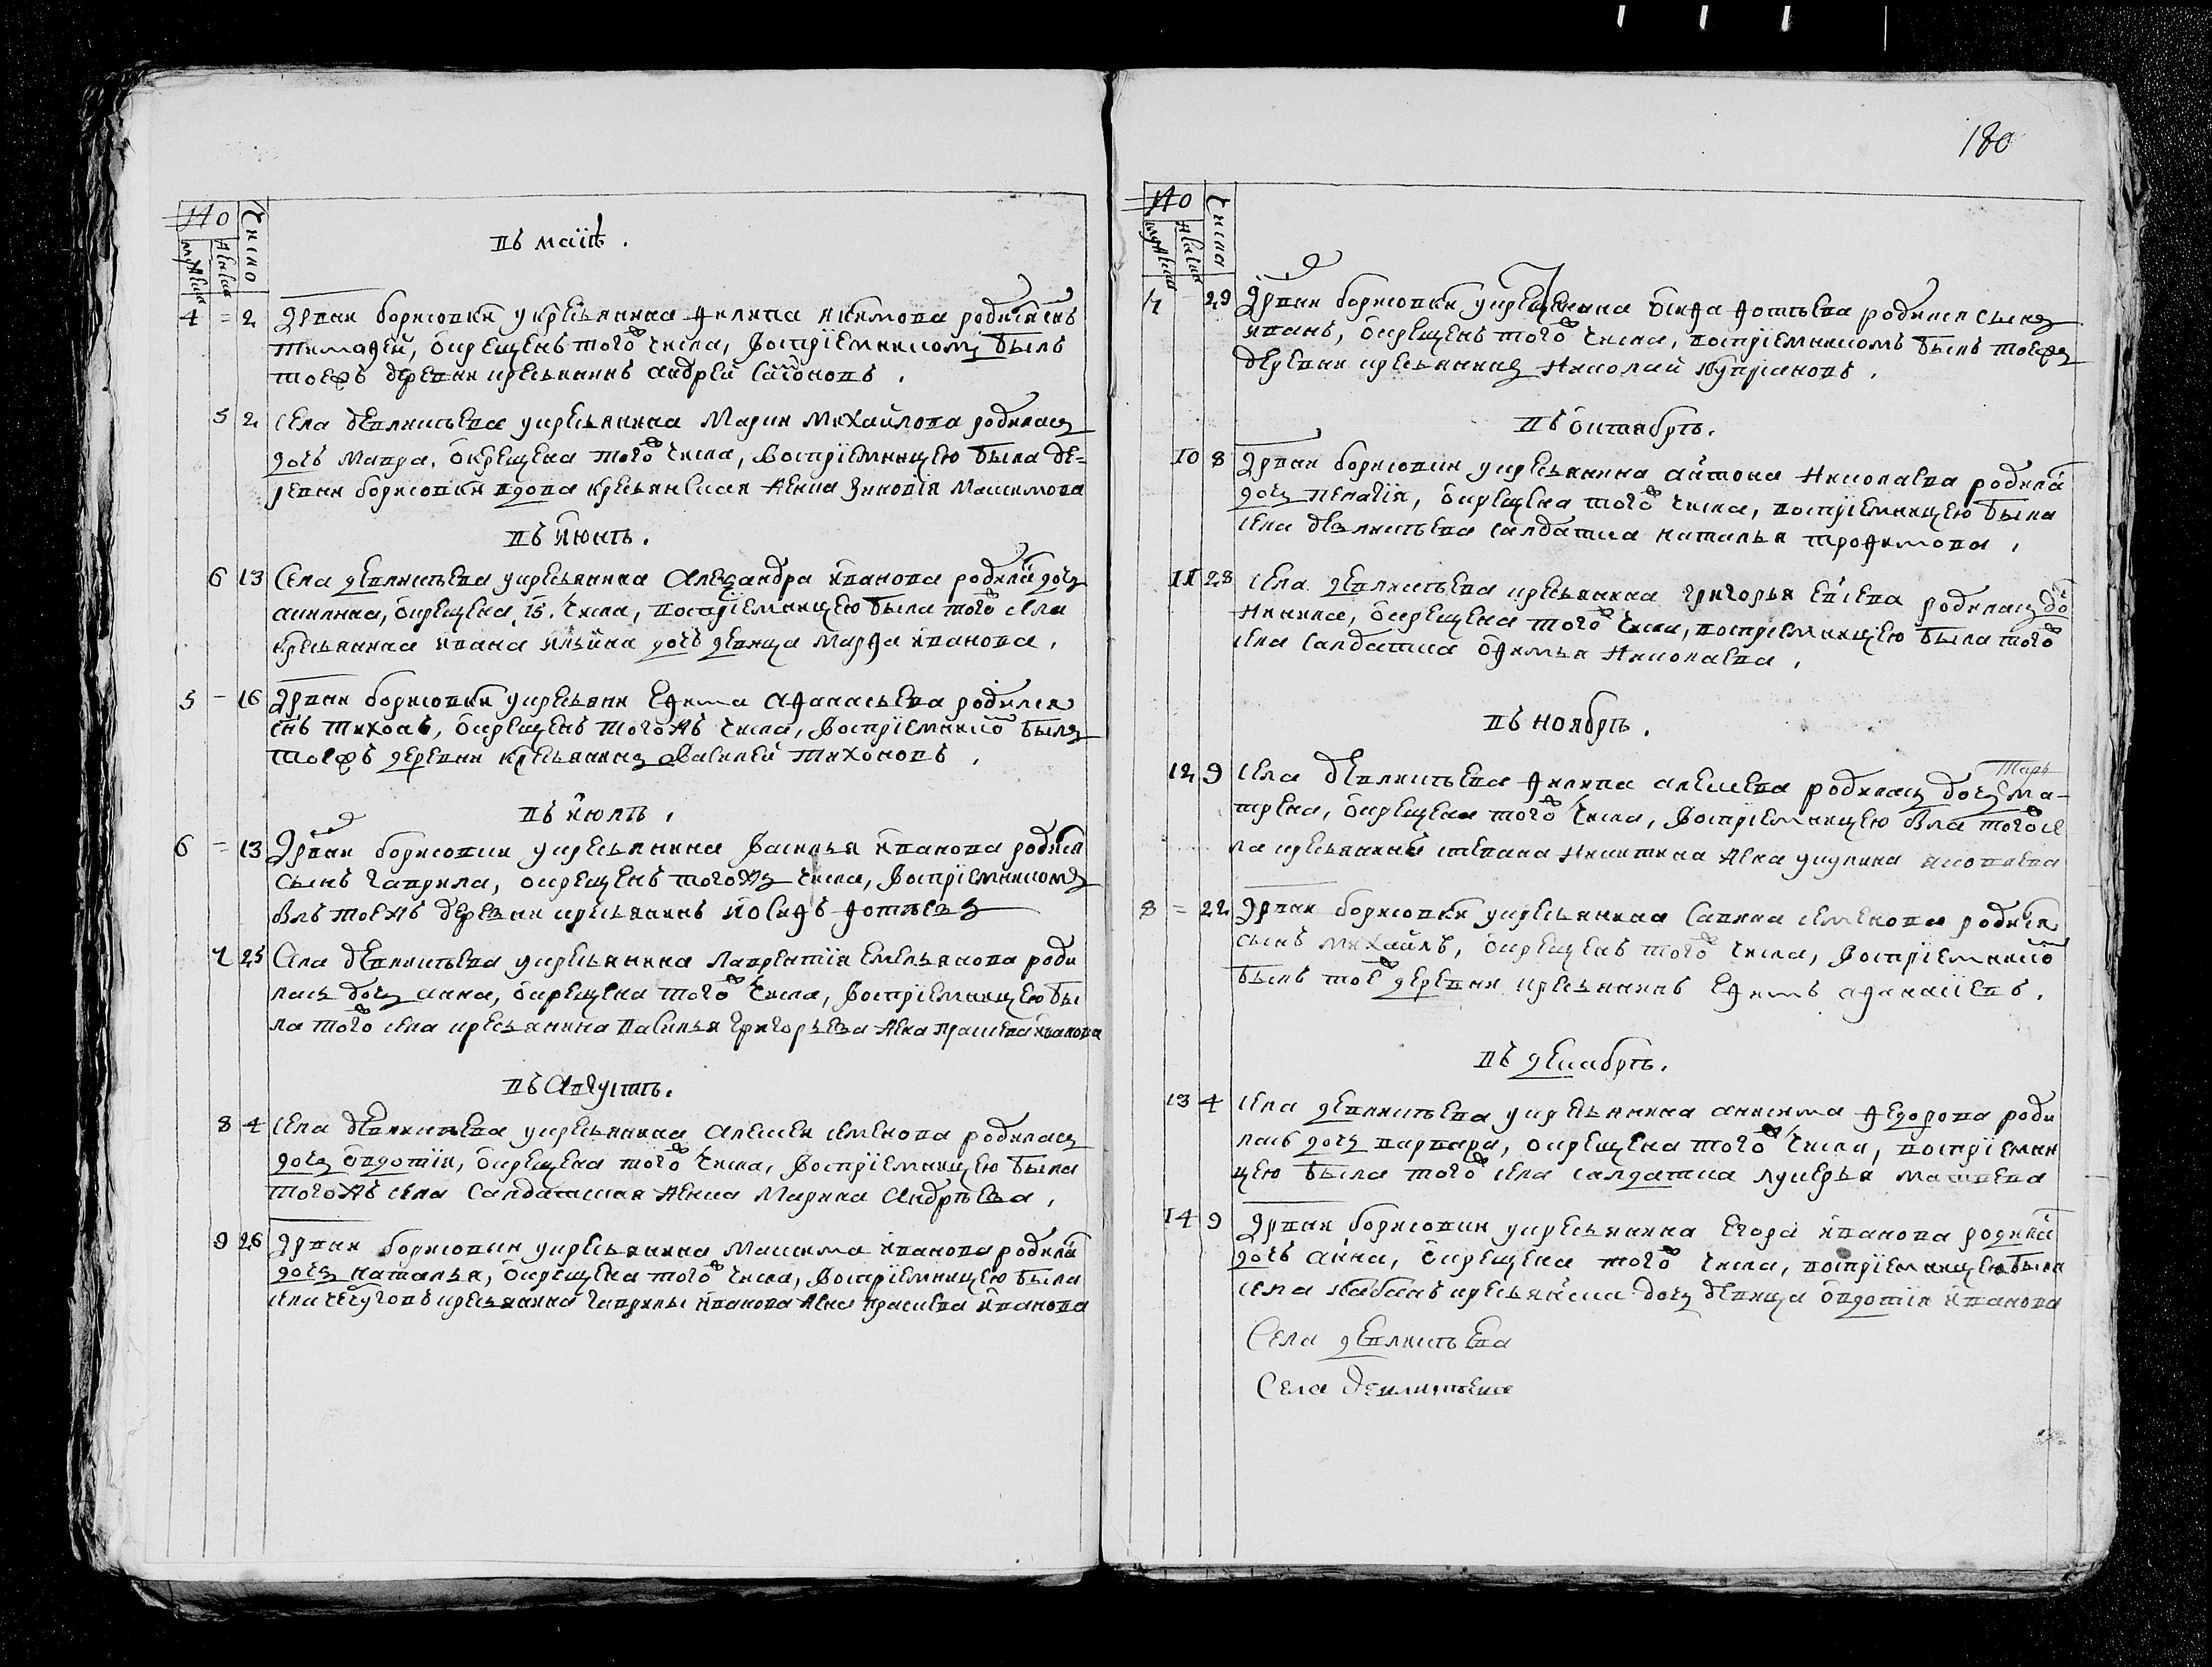 No Число
мужеска женска
въ маiѣ.
4 = 2 Дрвни борисовки у крестьянина филипа якимова родися снъ
тимофей, окрещенъ того ж числа, восприемникомъ былъ
тоеж деревни крестьянинъ андрей
5 2 села девлитьева у крестьянина Марки Михайлова родилась
дочь мавра, окрещена того ж числа, восприемницею была де-
ревни борисовки вдова крестьянская женка Зиновiя Максимова
въ iюнѣ.
6 13 Села девлитьева у крестьянина Александра иванова родилась дочь
акилина, окрещена 15. числа, восприемницею была того ж села
крестьянина ивана ильина дочь девица марфа иванова.
5 - 16 Дрвни борисовки у крестьянина Ефима Афанасьева родился
снъ тихонъ, окрещенъ того жъ числа, восприемникомъ былъ
тоежъ деревни крестьянинъ Василей Тихоновъ.
въ iюлѣ.
6 = 13 Дрвни борисовки у крестьянина Василья иванова родися
сынъ гаврила, окрещенъ того жъ числа, восприемникомъ
былъ тоежъ деревни крестьянинъ иосифъ фотѣевъ
7 25 Села девлитьева у крестьянина лаврентiя емельянова роди
лась дочь анна, окрещена того ж числа, восприемницею бы
ла того ж села крестьянина василья григорьева жена прасковья иванова
въ Августѣ.
8 4 села девлитьева у крестьянина Алексея семенова родилась
дочь овдотiя, окрещена того ж числа, восприемницею была
того жъ села салдатская женка Марина Андрѣева.
9 26 Дрвни борисовки у крестьянина Максима иванова родилась
дочь наталья, окрещена того ж числа, восприемницею была
села крестьянина гаврилы иванова жена прасковья иванова
180
No Числа
мужеска женска
7 29 Дрвни борисовки у крестьянина осифа фотѣева родился сынъ
иванъ, окрещенъ того ж числа, восприемникомъ былъ тоежъ
деревни крестьянинъ николай куприановъ.
въ октябрѣ.
10 8 Дрвни борисовки у крестьянина антона николаева родилась
дочь пелагiя, окрещена того ж числа, восприемницею была
села девлитьева салдатка наталья трофимова.
11 28 села девлитьева крестьянина григорья родилась дочь
окрещена того ж числа, восприемницею была того ж
села салдатка офимья николаева.
въ ноябрѣ.
12 9 села девлитьева филипа алексеева родилась дочь ма-
трена, окрещена того ж числа, восприемницею была того ж се
ла крестьянина степана никитина жена акулина яковлева
8 = 22 Дрвни борисовки у крестьянина Савина семенова родился
сынъ михайлъ, окрещенъ того ж числа, восприемникомъ
былъ тоеж деревни крестьянинъ Ефимъ афанасiевъ.
въ декабрѣ.
13 4 села девлитьева у крестьянина анисима федорова роди
лась дочь варвара, окрещена того ж числа, восприемни
цею была того ж села салдатка лукерья матвеева
14 9 Дрвни борисовки у крестьянина Егора иванова родилась
дочь анна, окрещена того ж числа, восприемницею была
села крестьянина дочь девица овдотiя иванова
Села девлитьева
Села девлитьева